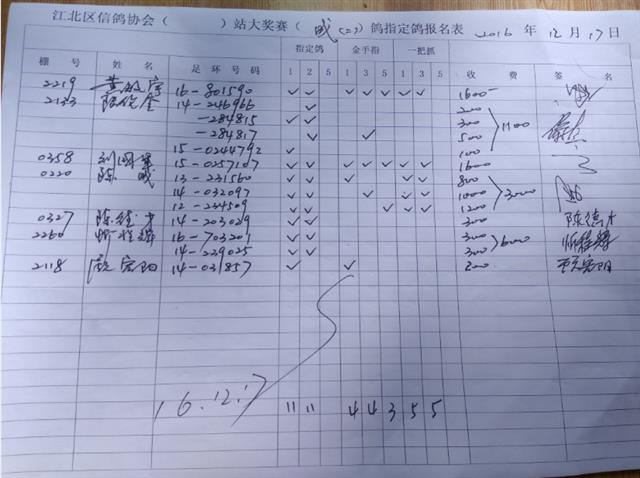 江北区信鸽协会（ ）站大奖赛（ 成（二） ）鸽指定鸽报名表 2016 年 12 月 17 日
棚 号 姓 名 足 环 号 码 指定鸽 金手指 一把抓 收 费 签 名
1 2 5 1 3 5 1 3 5
2219 16-801590 ✓ ✓ ✓ ✓ ✓ ✓ ✓ 1600
2133 14-246966 ✓ 200
-284815 ✓ ✓ 300 1100
-284817 ✓ ✓ 500
15-0244792 ✓ 100
0358 15-0257107 ✓ ✓ ✓ ✓ ✓ ✓ ✓ 1600
0220 陈 13-231560 ✓ ✓ ✓ ✓ 800
14-032097 ✓ ✓ ✓ ✓ ✓ 1000 3000
12-244509 ✓ ✓ ✓ ✓ ✓ 1200
0327 陈德才 14-203029 ✓ ✓ 300 陈德才
2260 忻程锋 16-703201 ✓ ✓ 300 600 忻程锋
14-229025 ✓ ✓ 300
2118 宏阳 14-031857 ✓ ✓ 200 宏阳
16.12.17
11 11 4 4 3 5 5